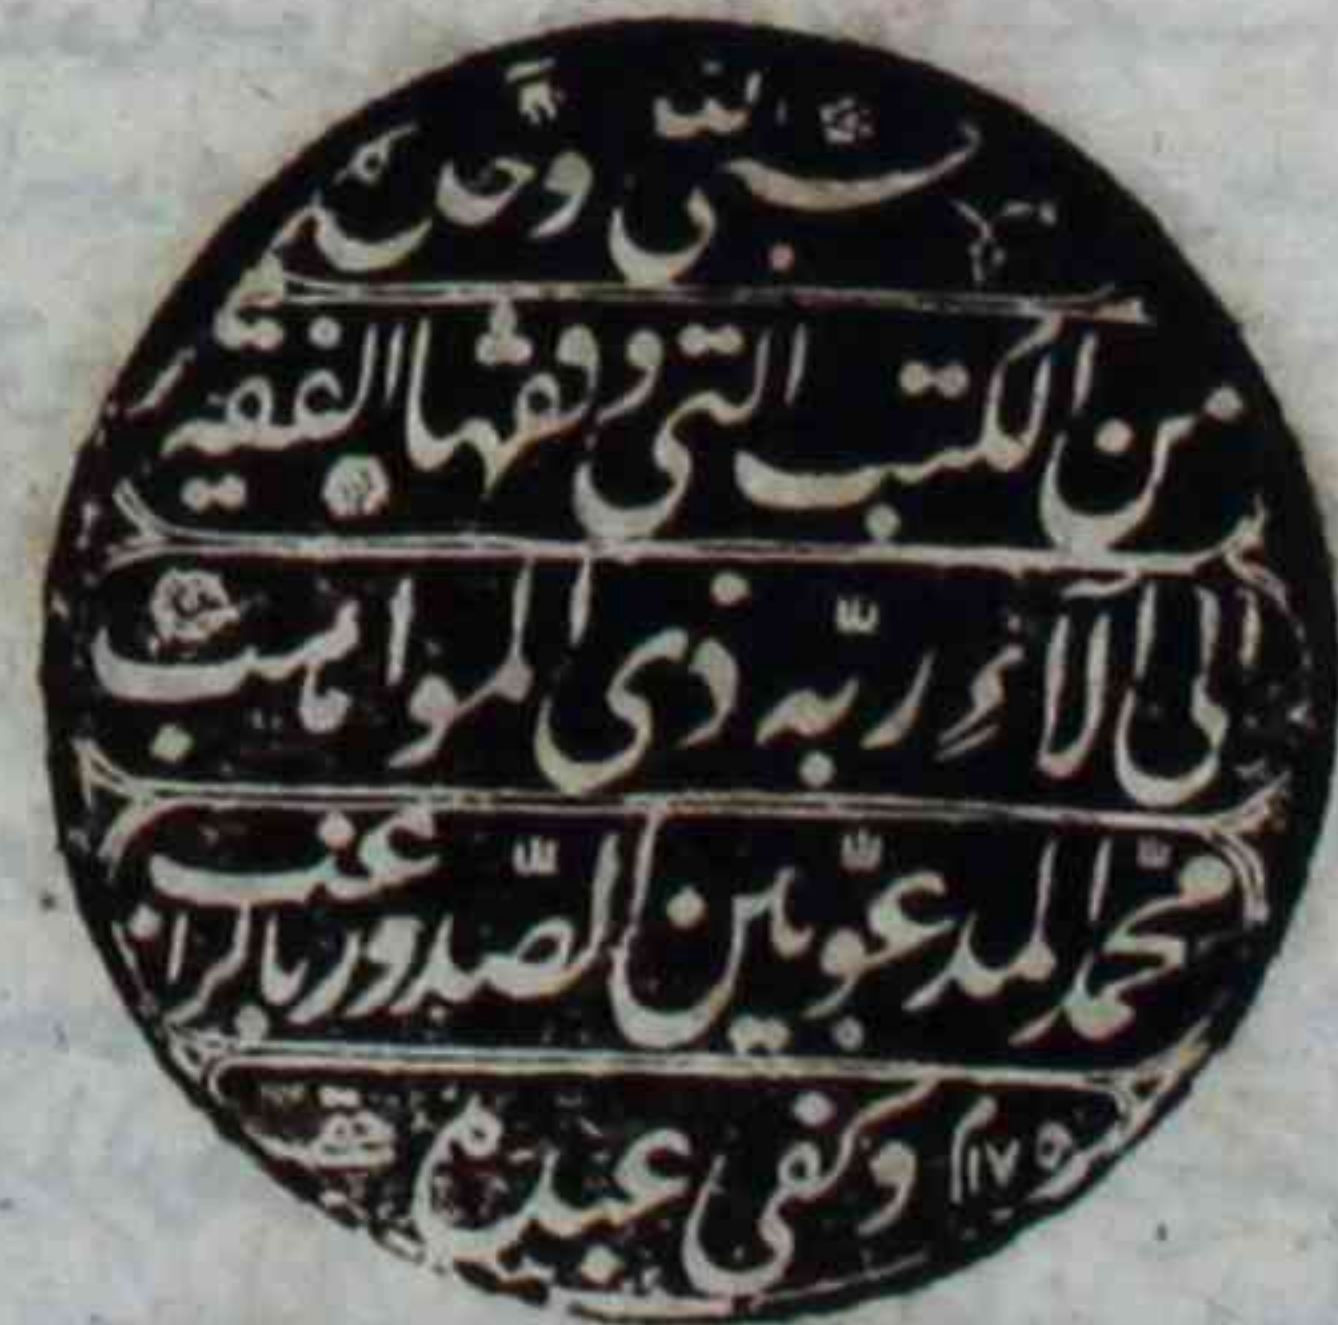 حسبی الله وحده
من الكتب التی وقفها الفقیر
الی آلاءِ ربّه ذی المواهب
محمّد المدعوّ بین الصّدور بالراغب
وكفی عبده